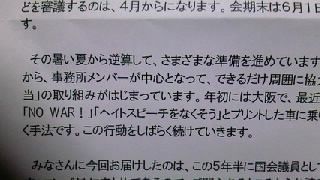 どを審議するのは、4月からになります。会期末は6月1日
す。
その暑い夏から逆算して、さまざまな準備を進めています
から、事務所メンバーが中心となって、できるだけ周囲に協
当」の取り組みがはじまっています。年初には大阪で、最近
「NO WAR！」「ヘイトスピーチをなくそう」とプリントした車に乗
く手法です。この行動をしばらく続けていきます。
みなさんに今回お届けしたのは、この5年半に国会議員として